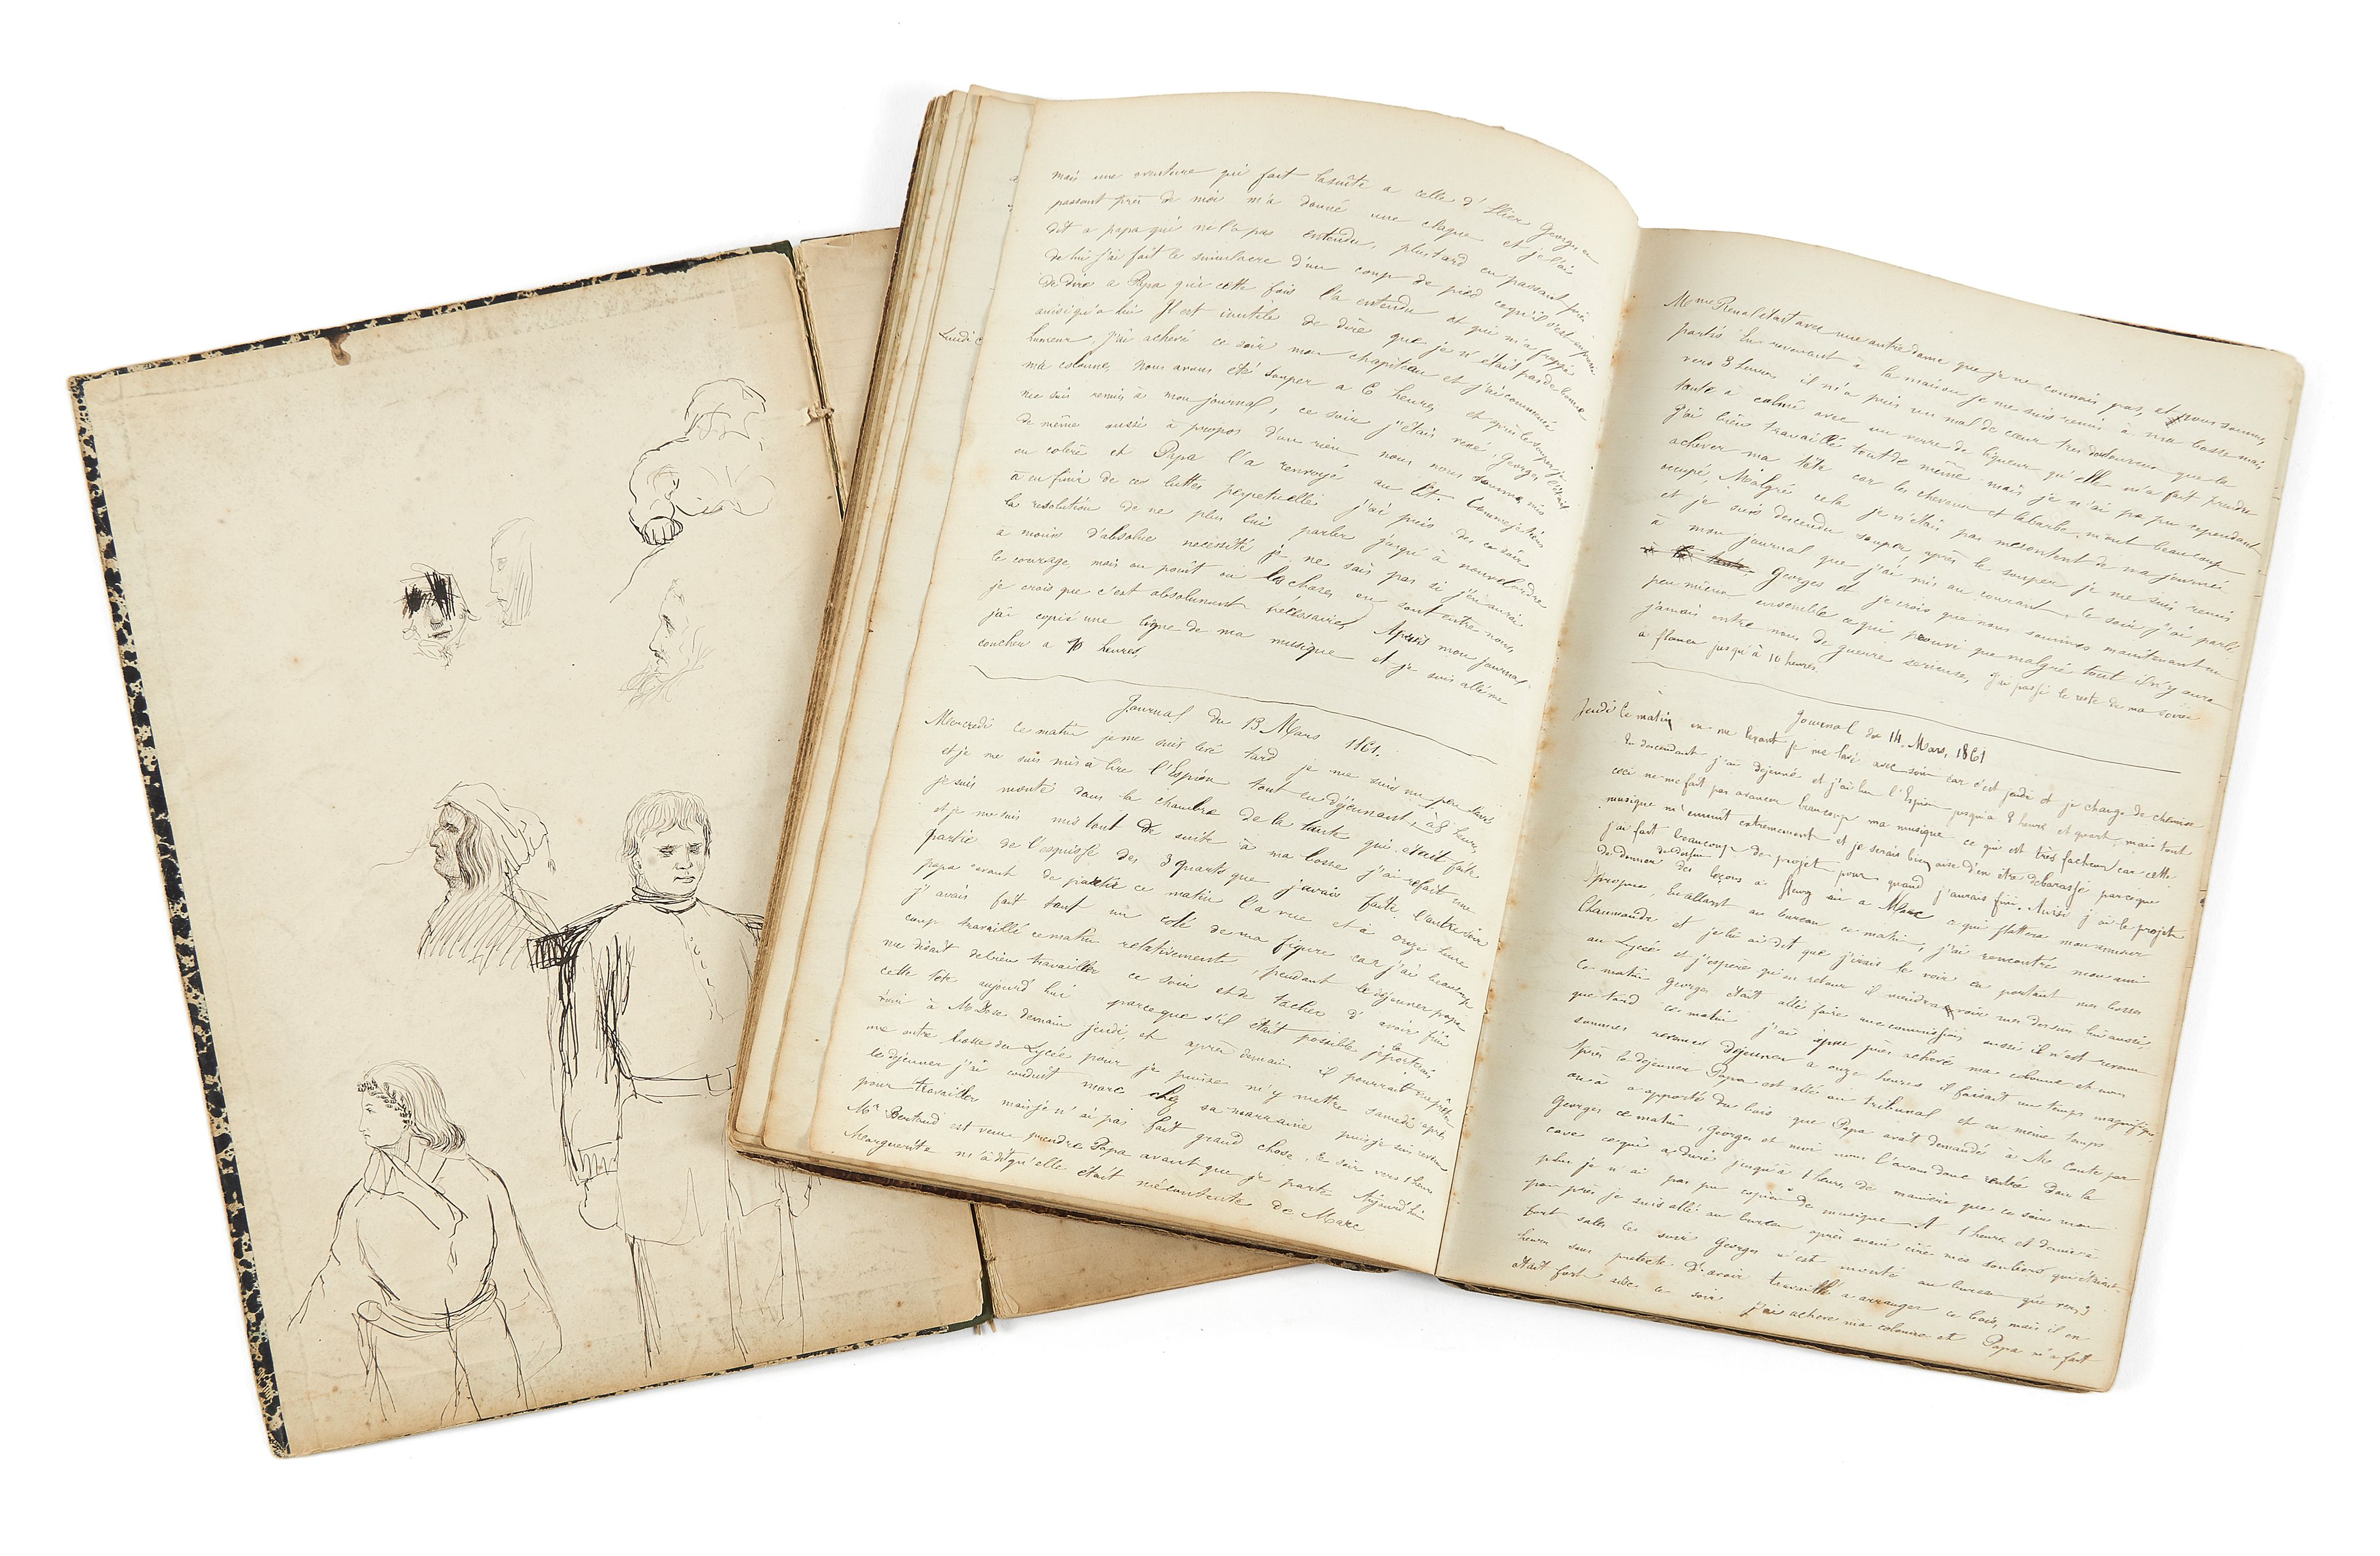 mais une aventure qui fait la suite a celle d'hier Georges en
passant près de moi m'a donné une claque et je l'ai
dit a papa qui ne l'a pas entendu, plus tard en passant près
de lui j'ai fait le simulacre d'un coup de pied ce qu'il s'est empressé
de dire a Papa qui cette fois l'a entendu et qui m'a frappé
ainsi qu'a lui Il est inutile de dire que je n'étais pas de bonne
humeur, j'ai achevé ce soir mon chapiteau et j'ai commencé
ma colonne, nous avons été souper a 6 heures et après le souper je
me suis remis à mon journal, ce soir j'étais vexé, Georges l'était
de même aussi à propos d'un rien nous nous sommes mis
en colère et Papa l'a renvoyé au lit. Comme je tiens
à en finir de ces luttes perpetuelles j'ai pris des ce soir
la résolution de ne plus lui parler jusqu'à nouvel ordre
à moins d'absolue necessité je ne sais pas si j'en aurai
le courage, mais au point où les choses en sont entre nous,
je crois que c'est absolument nécessaire, Après mon journal
j'ai copié une ligne de ma musique et je suis allé me
coucher a 10 heures.
Lundi
Journal du 13 Mars 1861.
Mercredi ce matin je me suis levé tard je me suis un peu lavé
et je me suis mis à lire l'Espion tout en déjeunant, à 8 heures
je suis monté dans la chambre de la tante qui était faite
et je me suis mis tout de suite à ma bosse j'ai refait une
partie de l'esquisse des 3 quarts que j'avais faite l'autre soir
papa avant de partir ce matin l'a vue et à onze heure
j'avais fait tout un coté de ma figure car j'ai beaucoup
travaillé ce matin relativement, pendant le déjeuner papa
me disait de bien travailler ce soir et de tacher d'avoir fini
cette tete aujourd'hui parceque s'il était possible je la porterais
à Mr demain jeudi, et après demain il pourrait
me autre bosse du Lycée pour je puisse m'y mettre samedi après
le déjeuner j'ai conduit Marc chez sa marraine puis je suis revenu
pour travailler mais je n'ai pas fait grand chose, ce soir vers 1 heure
Mr Bertrand est venu prendre Papa avant que je parte Aujourd'hui
Marguerite m'a dit qu'elle était mécontente de Marc
Mme Renal était avec une autre dame que je ne connais pas, et nous sommes
partis En revenant à la maison je me suis remis à ma bosse mais
vers 3 heures il m'a pris un mal de cœur très douloureux que la
tante a calmé avec un verre de liqueur qu'elle m'a fait prendre
J'ai bien travaillé tout de même mais je n'ai pas pu cependant
achever ma tête car les cheveux et la barbe m'ont beaucoup
occupé, Malgré cela je n'étais pas mécontent de ma journée
et je suis descendu souper, après le souper je me suis remis
à mon journal que j'ai mis au courant, ce soir j'ai parlé
à Georges et je crois que nous sommes maintenant un
peu mieux ensemble ce qui prouve que malgré tout il n'y aura
jamais entre nous de guerre serieuse, j'ai passé le reste de ma soirée
a flaner jusqu'à 10 heures.
Journal du 14 Mars, 1861
Jeudi ce matin en me levant je me lavé avec soin car c'est jeudi et je change de chemise
En descendant j'ai déjeuné et j'ai lu l'Espion jusqu'a 8 heures et quart, mais tout
ceci ne me fait pas avancer beaucoup ma musique ce qui est très facheux car cette
musique m'ennuit extremement et je serais bien aise d'en être débarassé parceque
j'ai fait beaucoup de projet pour quand j'aurais fini. Aussi j'ai le projet
de donner des leçons de dessin à Fleury ou a Marc ce qui flattera mon amour
propre, En allant au bureau ce matin, j'ai rencontré mon ami
Chaumande et je lui ai dit que j'irais le voir en portant mes bosses
au Lycée et j'espère qu'en retour il viendra voir mes dessins lui aussi,
Ce matin Georges était allé faire une commission aussi il n'est revenu
que tard ce matin j'ai à peu près achevé ma colonne et nous
sommes revenus déjeuner a onze heures il faisait un temps magnifique
Après le déjeuner Papa est allé au tribunal et en meme temps
on a apporté du bois que Papa avait demandé à Mr Conte par
Georges ce matin, Georges et moi nous l'avons donc rentré dans la
cave ce qui a duré jusqu'à 1 heure de manière que ce soir non
plus je n'ai pas pu copier de musique A 1 heure et demie à
peu près je suis allé au bureau après avoir ciré mes souliers qui étaient
fort sales ce soir Georges n'est monté au bureau que vers 3
heures sous pretexte d'avoir travaillé a arranger ce bois, mais il en
était fort aise ce soir j'ai achevé ma colonne et Papa m'a fait